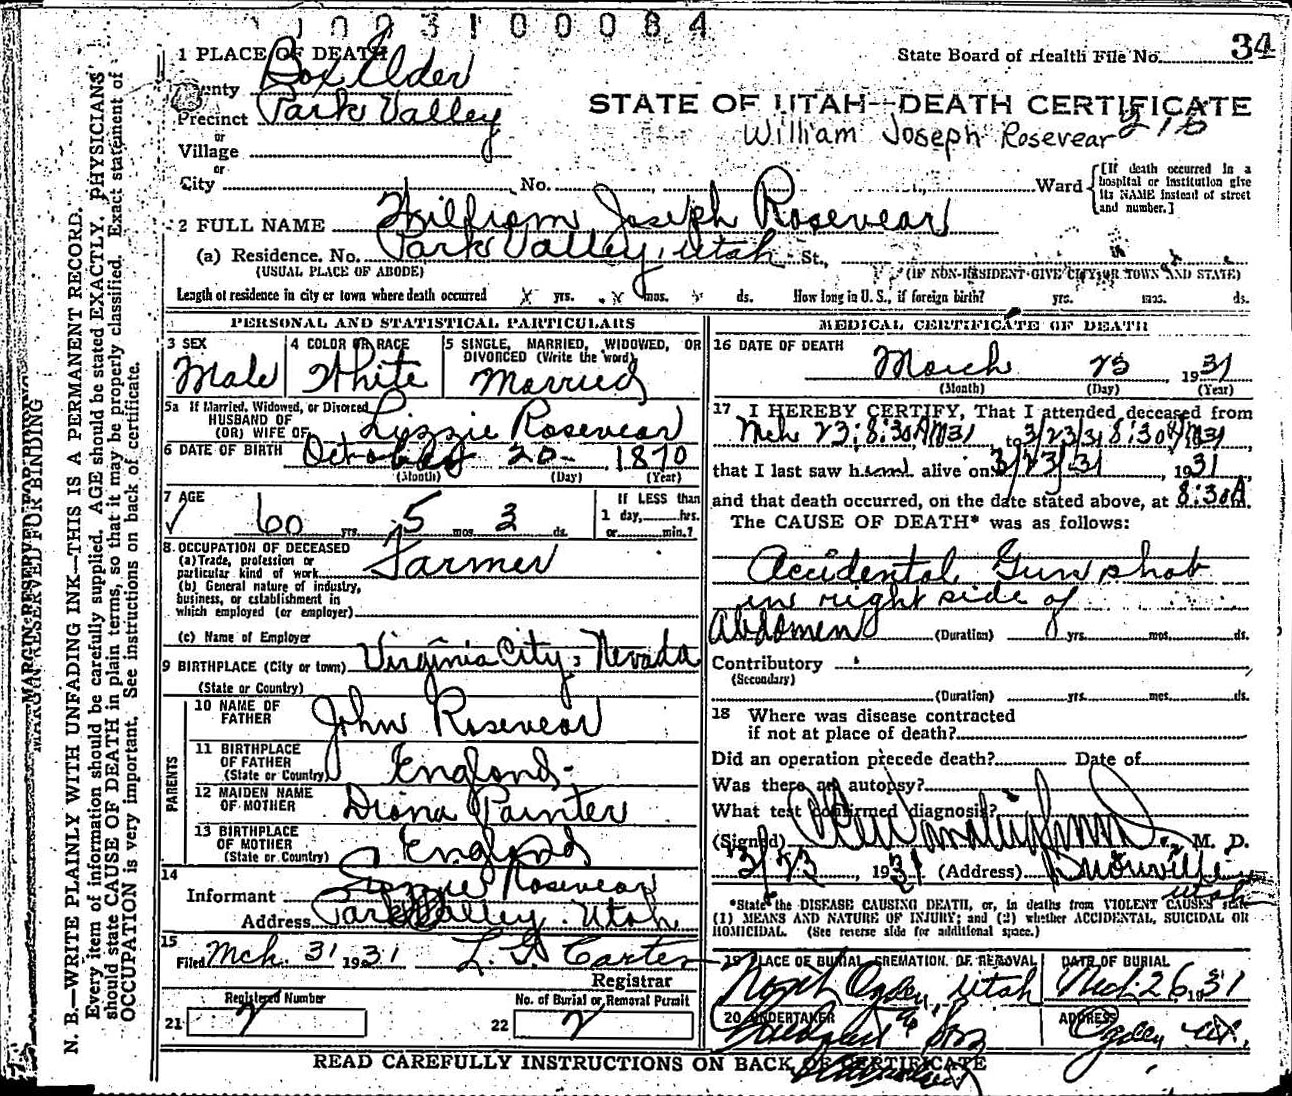 1 0 0 3 1 0 0 0 8 4
1 PLACE OF DEATH
State Board of Health File No. 34
County Box Elder
Precinct Park Valley
STATE OF UTAH—DEATH CERTIFICATE
William Joseph Rosevear 215
or
Village
or
City No. Ward
[If death occurred in a hospital or institution give its NAME instead of street and number.]
2 FULL NAME William Joseph Rosevear
(a) Residence. No. Park Valley, Utah St.,
(USUAL PLACE OF ABODE) (IF NON-RESIDENT GIVE CITY OR TOWN AND STATE)
Length of residence in city or town where death occurred yrs. mos. ds. How long in U.S., if foreign birth? yrs. mos. ds.
PERSONAL AND STATISTICAL PARTICULARS
3 SEX Male
4 COLOR OR RACE White
5 SINGLE, MARRIED, WIDOWED, OR DIVORCED (Write the word) Married
5a If Married, Widowed, or Divorced
HUSBAND OF
(OR) WIFE OF Lizzie Rosevear
6 DATE OF BIRTH October 20 1870
(Month) (Day) (Year)
7 AGE 60 yrs. 5 mos. 3 ds.
If LESS than
1 day, hrs.
or min.?
8. OCCUPATION OF DECEASED
(a) Trade, profession or
particular kind of work Farmer
(b) General nature of industry,
business, or establishment in
which employed (or employer)
(c) Name of Employer
9 BIRTHPLACE (City or town) Virginia City, Nevada
(State or Country)
PARENTS
10 NAME OF
FATHER John Rosevear
11 BIRTHPLACE
OF FATHER
(State or Country) England
12 MAIDEN NAME
OF MOTHER Diana Painter
13 BIRTHPLACE
OF MOTHER
(State or Country) England
14
Informant Lizzie Rosevear
Address Park Valley, Utah
15
Filed Mch. 31 1931 Carter
Registrar
Registered Number
21 2
No. of Burial or Removal Permit
22 2
MEDICAL CERTIFICATE OF DEATH
16 DATE OF DEATH March 23, 1931
(Month) (Day) (Year)
17 I HEREBY CERTIFY, That I attended deceased from
Mch 23; 8:30 AM 31, to 3/23/31 8:30 AM 31
that I last saw him alive on 3/23/31, 1931
and that death occurred, on the date stated above, at 8:30 A.
The CAUSE OF DEATH* was as follows:
Accidental Gun shot
in right side of
Abdomen (Duration) yrs. mos. ds.
Contributory
(Secondary)
(Duration) yrs. mos. ds.
18 Where was disease contracted
if not at place of death?
Did an operation precede death? Date of
Was there an autopsy?
What test confirmed diagnosis?
(Signed) M. D.
3/23, 1931 (Address) Utah
*State the DISEASE CAUSING DEATH, or, in deaths from VIOLENT CAUSES state
(1) MEANS AND NATURE OF INJURY; and (2) whether ACCIDENTAL, SUICIDAL OR
HOMICIDAL. (See reverse side for additional space.)
19 PLACE OF BURIAL, CREMATION, OR REMOVAL
North Ogden, Utah
DATE OF BURIAL
Mch. 26 1931
20 UNDERTAKER
ADDRESS
Ogden Ut.
READ CAREFULLY INSTRUCTIONS ON BACK OF CERTIFICATE
MARGIN RESERVED FOR BINDING
N. B.—WRITE PLAINLY WITH UNFADING INK—THIS IS A PERMANENT RECORD.
Every item of information should be carefully supplied. AGE should be stated EXACTLY. PHYSICIANS
should state CAUSE OF DEATH in plain terms, so that it may be properly classified. Exact statement of
OCCUPATION is very important. See instructions on back of certificate.